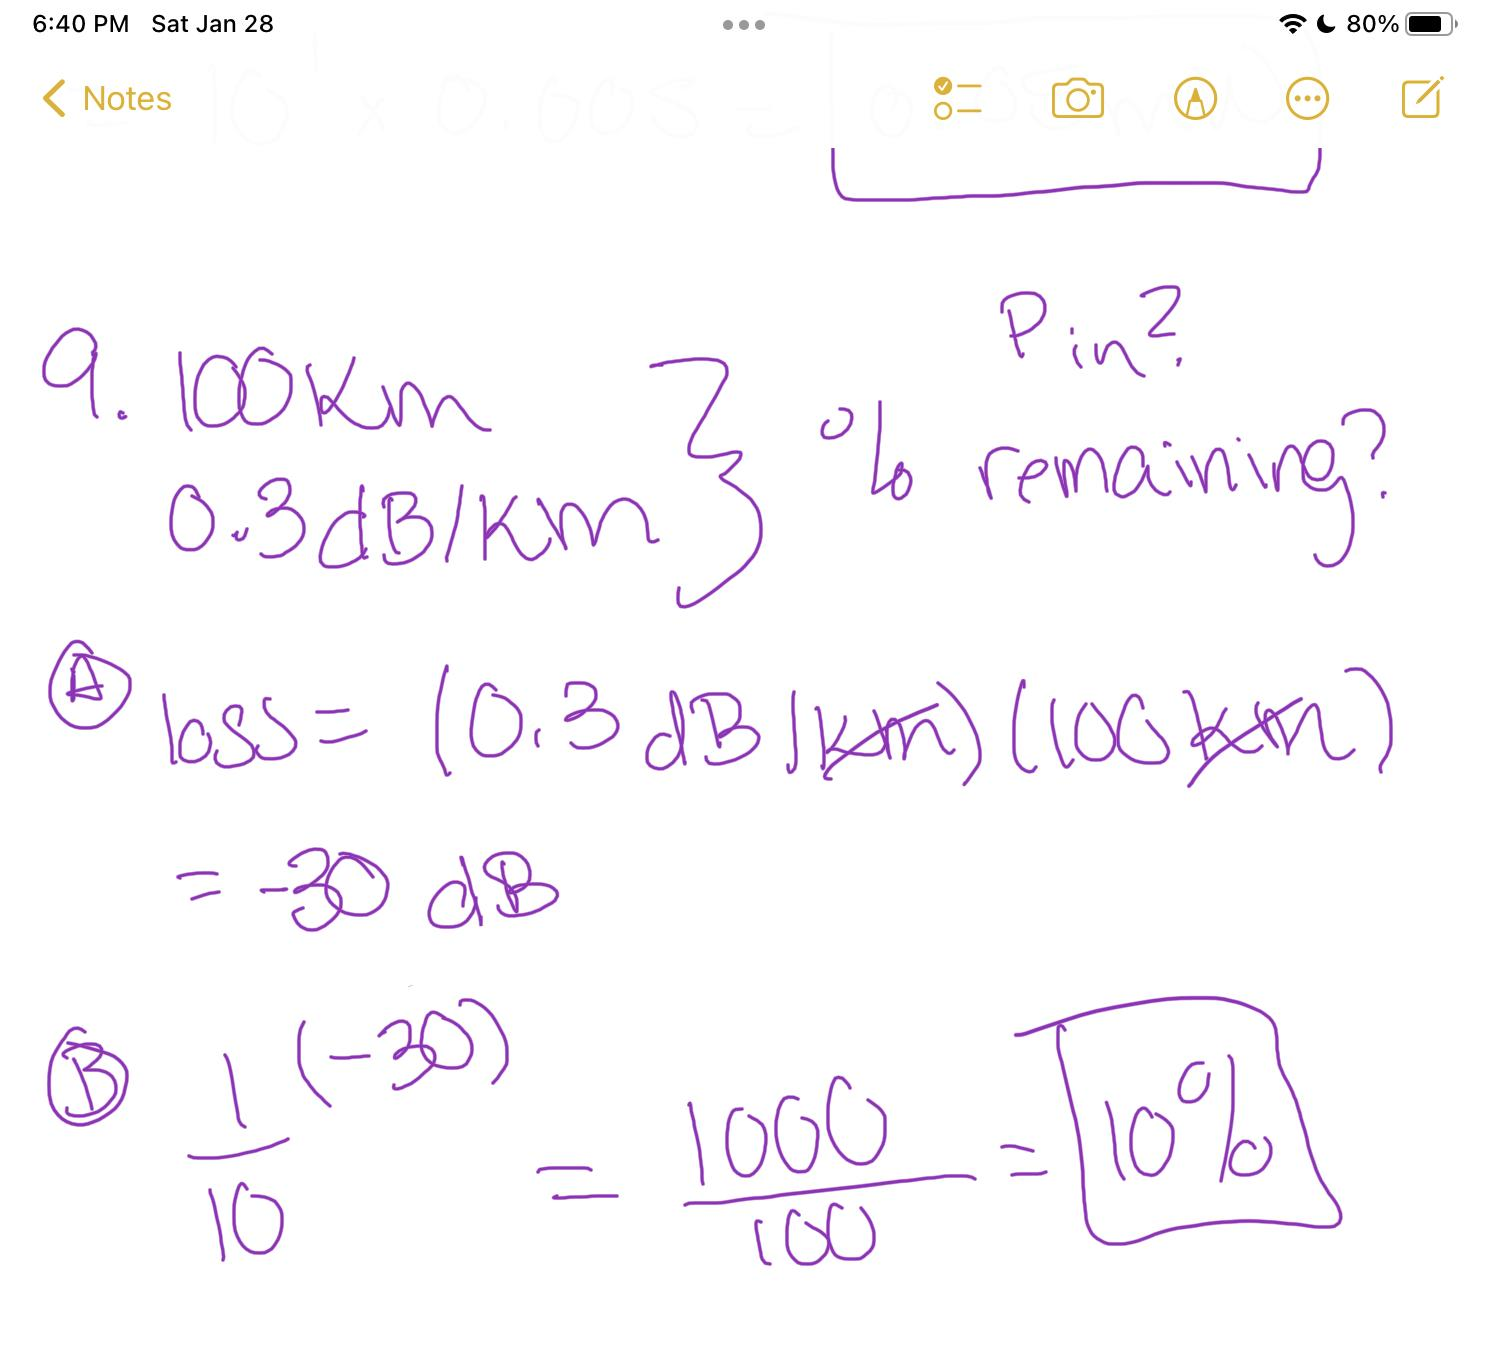 6:40 PM Sat Jan 28
80%
Notes
10 x 0.005 =
9. 100 Km
0.3 dB/Km
Pin?
% remaining?
A loss = (0.3 dB/km)(100 km)
= -30 dB
B 1/10 (-30) = 1000/100 = 10%